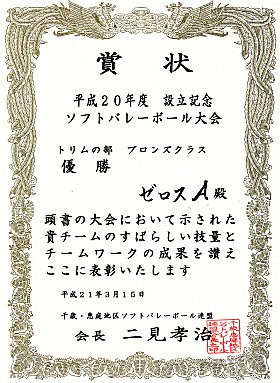 賞状
平成20年度 設立記念
ソフトバレーボール大会
トリムの部 ブロンズクラス
優勝
ゼロスA殿
頭書の大会において示された
貴チームのすばらしい技量と
チームワークの成果を讃え
ここに表彰いたします
平成21年3月15日
千歳・恵庭地区ソフトバレーボール連盟
会長 二見孝治